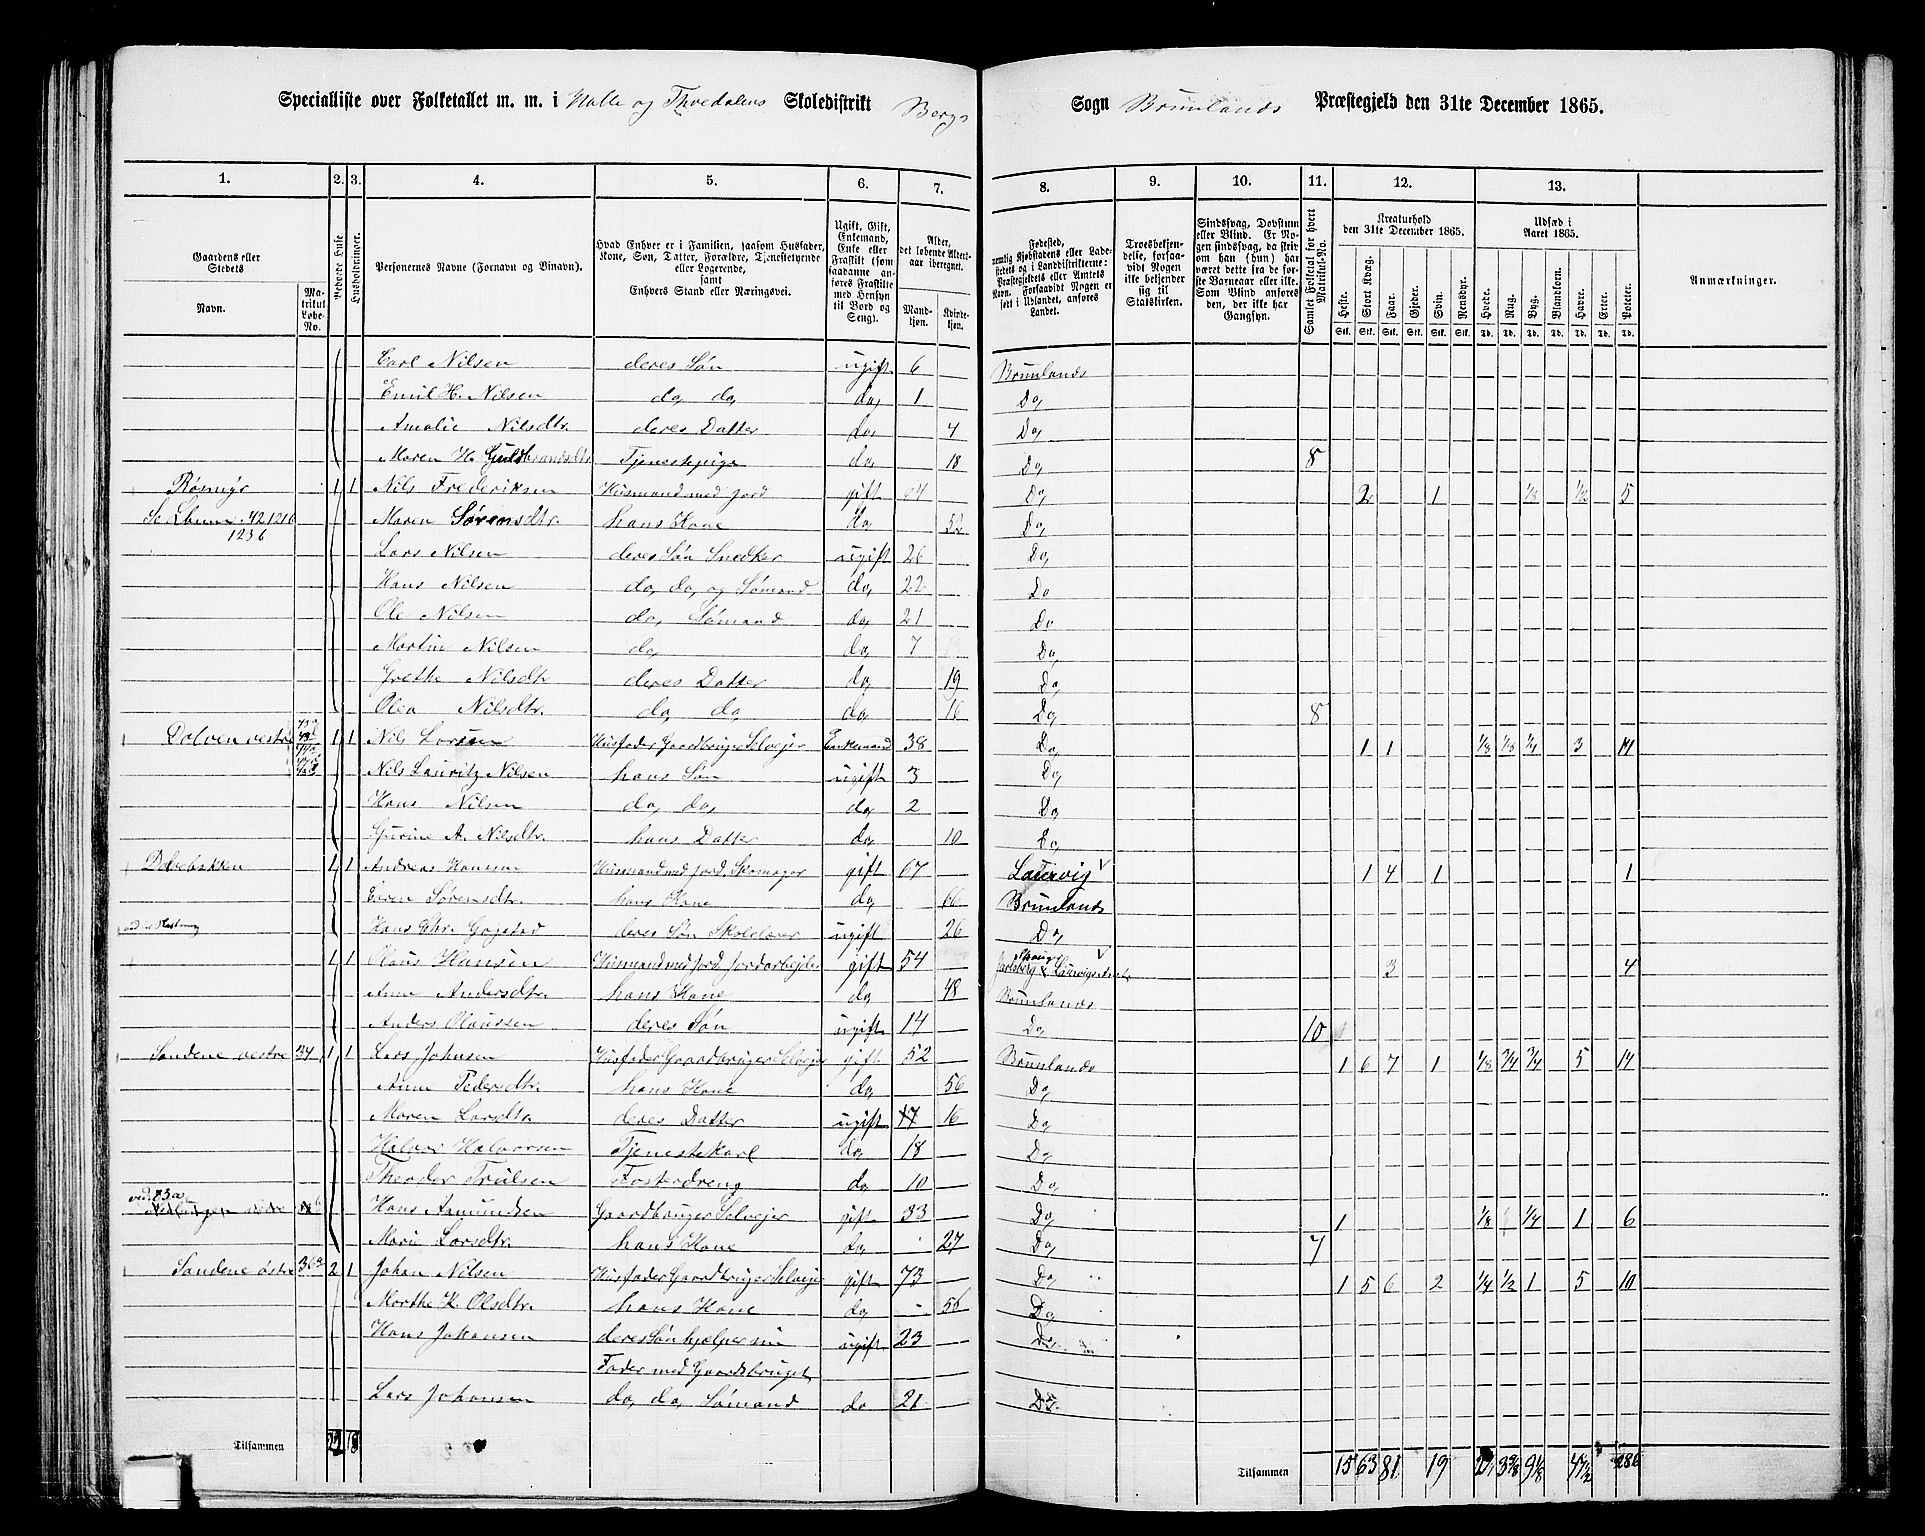 Specialliste over Folketallet m. m. i Halle og Thvedalens Skoledistrikt Bergs Sogn Brunlands Præstegjeld den 31te December 1865.
1. 2. 3. 4. 5. 6. 7. 8. 9. 10. 11. 12. 13.
Gaardens eller Stedets Navn. Matrikul Løbe-No.
Beboede Huse
Husholdninger.
Personernes Navne (Fornavn og Binavn).
Hvad Enhver er i Familien, saasom Husfader, Kone, Søn, Datter, Forældre, Tjenestetyende eller Logerende, samt Enhvers Stand eller Næringsvei.
Ugift, Gift, Enkemand, Enke eller Fraskilt (som saadanne anføres Fraskilte med Hensyn til Bord og Seng).
Alder, det løbende Alders-aar iberegnet. Mandkjøn. Kvindekjøn.
Fødested, nemlig Kjøbstadens eller Ladestedets og i Landdistrikterne: Præstegjeldets eller Amtets Navn. Forsaavidt Nogen er født i Udlandet, anføres Landet.
Troesbekjendelse, forsaavidt Nogen ikke bekjender sig til Statskirken.
Sindssvag, Døvstum eller Blind. Er Nogen sindssvag, da skrives om han (hun) har været dette fra de første Barneaar eller ikke. Som Blind anføres den, der ikke har Gangsyn.
Samlet Folketal for hvert Matrikul-No.
Kreaturhold den 31te December 1865. Heste. Stort Kvæg. Faar. Gjeder. Svin. Rensdyr.
Udsæd i Aaret 1865. Hvede. Rug. Byg. Blandkorn. Havre. Erter. Poteter.
Anmærkninger.
Carl Nilsen deres Søn ugift 6 Brunlands
Emil H. Nilsen do, do, do, 1 Do,
Amalie Nilsdtr. deres Datter do, 4 Do,
Maren H. Guldbrandsdtr. Tjenestepige do, 18 Do, 8
Røsmyr 1 1 Nils Frederiksen Husmand med Jord gift 64 Do, 2 1 1/8 1/2 5
Maren Sørensdtr. hans Kone do, 52 Do,
Lars Nilsen deres Søn Snedker ugift 26 Do,
Hans Nilsen do, do, og Sømand do, 22 Do
Ole Nilsen do, Sømand do, 21 Do
Martin Nilsen do, do, 7 Do,
Grethe Nilsdtr deres Datter do, 19 Do,
Olea Nilsdtr. do, do, do, 16 Do, 8
Dolven vestre 1 1 Nils Larsen Husfader Gaardbruger Selveier Enkemand 38 Do, 1 1 1/8 1/8 1/4 3 14
Nils Lauritz Nilsen hans Søn ugift 3 Do,
Hans Nilsen do, do, do, 2 Do,
Gurine A. Nilsdtr. hans Datter do, 10 Do,
1 1 Andreas Hansen Husmand med Jord, Skomager gift 67 Laurvig 1 4 1 1
Karen Sørensdtr. hans Kone do, 66 Brunlands
Hans Chr. Gogstad deres Søn Skolelærer ugift 26 Do,
1 1 Olaus Hansen Husmand med Jord, Jordarbeider gift 54 Jarlsberg & Laurvigs Amt 3 4
Anne Andersdtr. hans Kone do, 48 Brunlands
Anders Olaussen deres Søn ugift 14 Do, 10
Sandene vestre 34 1 1 Lars Johnsen Husfader Gaardbruger Selveier gift 52 Brunlands 1 6 7 1 1/8 3/4 3/4 5 14
Anne Pedersdtr. hans Kone do, 56 Do,
Maren Larsdtr. deres Datter ugift 17 16 Do,
Halvor Halvorsen Tjenestekarl do, 18 Do,
Theodor Trulsen Fosterdreng do, 10 Do,
Hans Aamundsen Gaardbruger Selveier gift 33 Do, 1 1/8 1/4 1 6
Marie Larsdtr. hans Kone do, 27 Do, 7
Sandene østre 36 2 1 Johan Nilsen Husfader Gaardbruger Selveier gift 73 Do, 1 5 6 2 1/4 1/2 1 5 10
Marthe K. Olsdtr. hans Kone do, 56 Do,
Hans Johansen deres Søn hjælper sin ugift 23 Do,
Fader med Gaardsbruget
Lars Johansen do, do, Sømand do 21 Do.
Tilsammen 18 Tilsammen 15 63 81 19